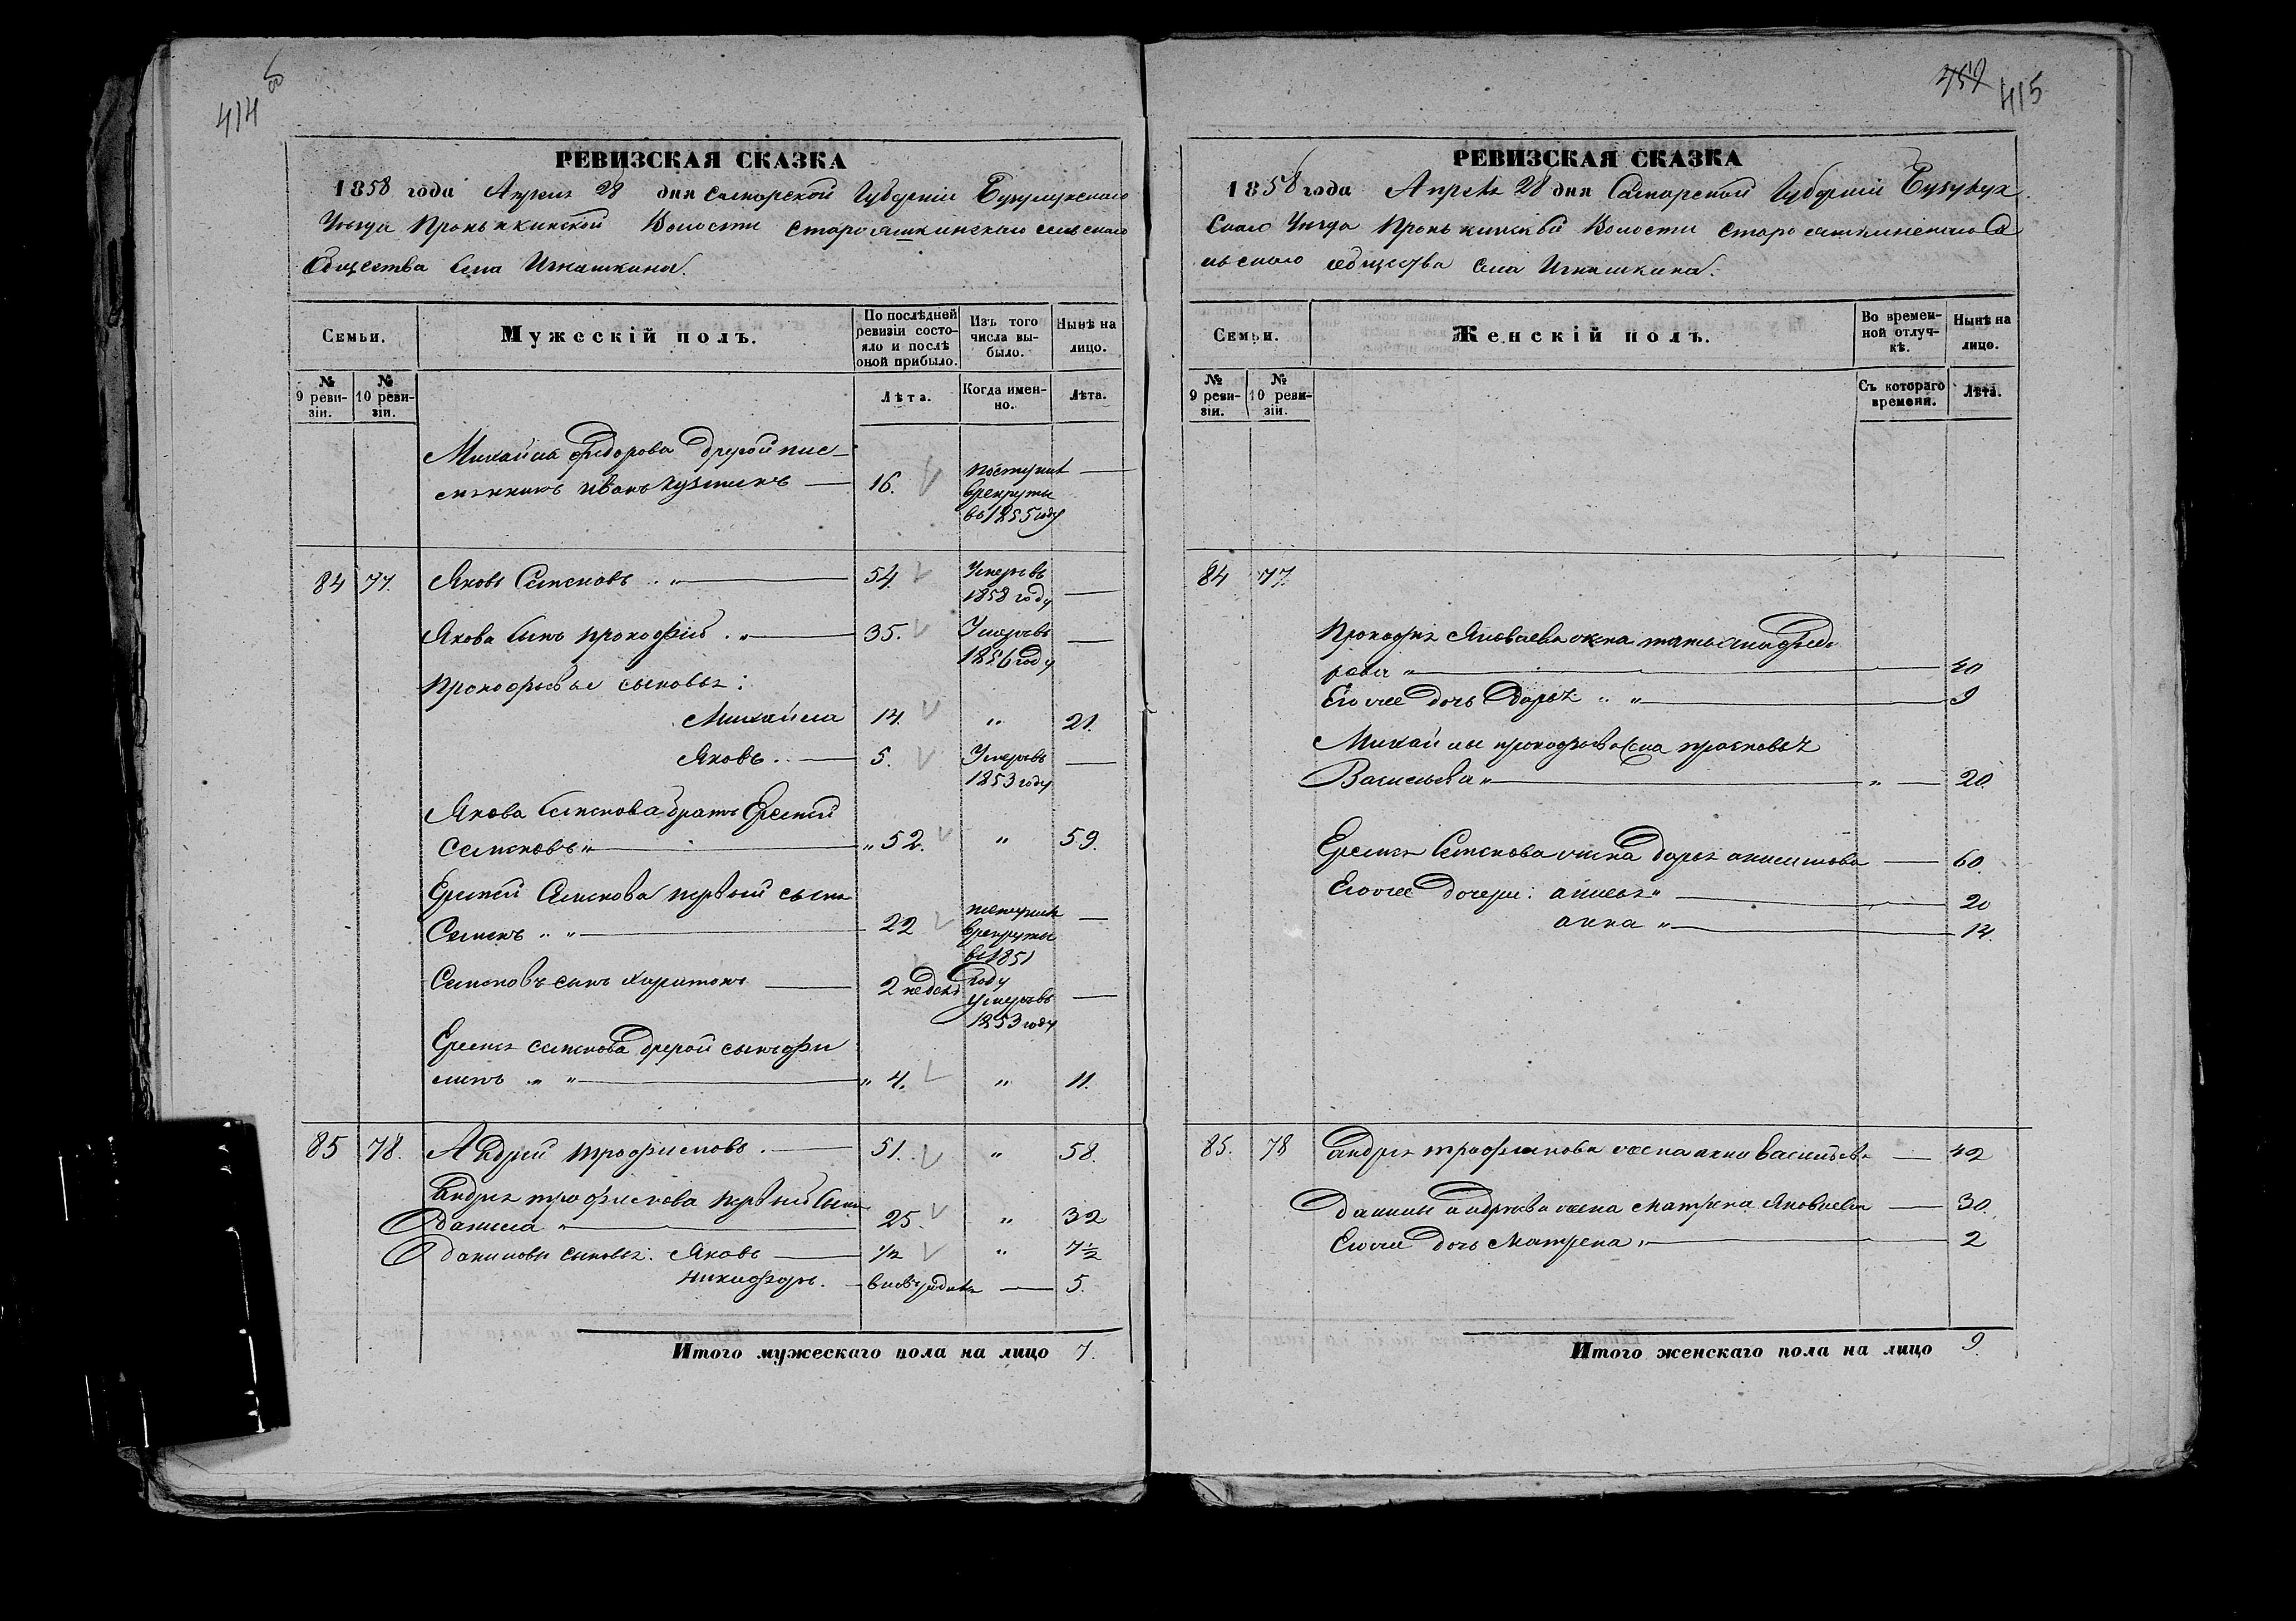 414 об
РЕВИЗСКАЯ СКАЗКА
1858 года Апреля 28 дня Самарской Губернiи Бузулукскаго
Уезда Пронькинской Волости Старояшкинскаго сельскаго
Общества села Игнашкина.
Семьи.
Мужескiй полъ.
По послѣдней ревизiи состо-
яло и послѣ
оной прибыло.
Изъ того
числа вы-
было.
Нынѣ на
лицо.
№
9 реви-
зiи.
№
10 реви-
зiи.
Лѣта.
Когда имен-
но.
Лѣта.
Михайла Федорова другой пле-
мянникъ Иванъ Кузминъ 16. поступилъ
врекруты
въ 1855 году
84 77. Яковъ Семеновъ 54. Умеръ въ
1858 году
Якова сынъ прокофiй 35. Умеръ въ
1856 году
Прокофьевы сыновья:
Михайла 14. " 21.
Яковъ 5. Умеръ въ
1853 году
Якова Семенова братъ Еремей
Семеновъ " 52. " 59.
Еремея Семенова первый сынъ
Семенъ 22 поступилъ
врекруты
въ 1851
году
Семеновъ сынъ Харитонъ 2 недель Умеръ въ
1853 году
Еремея Семенова другой сынъ Фи
липъ " 4. " 11.
85 78. Андрей трофимовъ. 51. " 58.
Андрея трофимова первый сынъ
данила " 25. " 32
даниловы сыновья: Яковъ 1/2 " 7 1/2
никифоръ. 5.
Итого мужескаго пола на лицо 7.
459 415
РЕВИЗСКАЯ СКАЗКА
1858 года Апреля 28 дня Самарской Губернiи Бузулук
Скаго Уезда Пронькинской Волости Старояшкинскаго Се
льскаго общества села Игнашкина.
Семьи.
Женскiй полъ.
Во времен-
ной отлуч-
кѣ.
Нынѣ на
лицо.
№
9 реви-
зiи.
№
10 реви-
зiи.
Съ котораго
времени.
Лѣта.
84 77.
Прокофья Яковлева жена татьяна федо
рова " 40
Eго же дочь Дарья " 9
Михайлы прокофьева жена прасковья
Васильева " " 20.
Еремея Семенова жена дарья анисимова 60.
Его же дочери: " 20
анна " 14.
85. 78 Андрея трофимова жена анна васильева 42
данилы андреева жена матрена Яковлева 30.
Его же дочь матрена " 2
Итого женскаго пола на лицо 9.